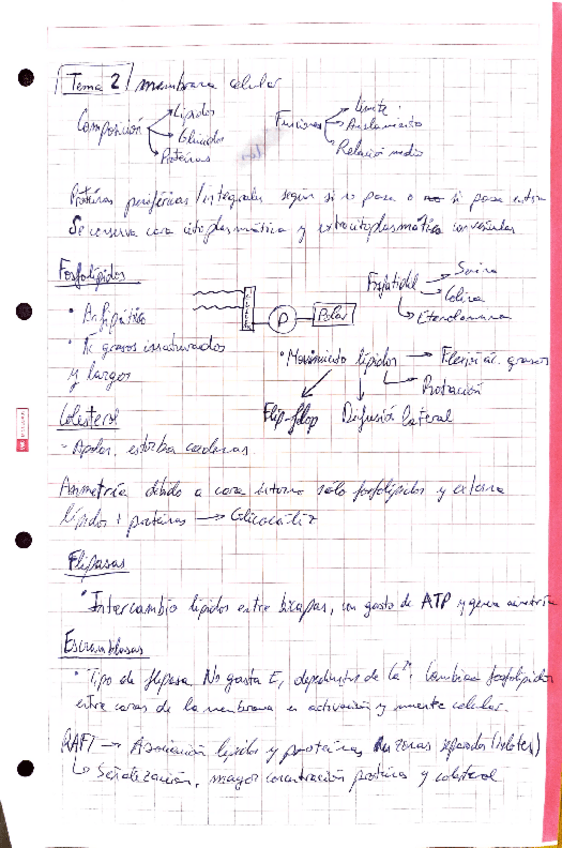 Tema 2 / membrana celular
Composición → Lípidos
→ Glúcidos
→ Proteínas
Funciones → Límite
→ Aislamiento
→ Relación medio
Proteínas periféricas / integrales según si no pasa o si pasa entera
Se conserva cara citoplasmática y extracitoplasmática en vesículas
Fosfolípidos
• Anfipático
• Ac grasos insaturados
y largos
P
Polar
Fosfatidil → Serina
→ Colina
→ Etanolamina
• Movimiento lípidos → Flexión ac. grasos
→ Rotación
Flip-flop
Difusión lateral
Colesterol
- Apolar, estorba cadenas
Asimetría debido a cara interna sólo fosfolípidos y externa
lípidos + proteínas → Glicocáliz
Flipasas
• Intercambio lípidos entre bicapas, con gasto de ATP y genera asimetría
Escramblasas
• Tipo de flipasa No gasta E, dependientes de Ca²⁺. Cambian fosfolípidos
entre caras de la membrana en activación y muerte celular.
RAFT → Asociación lípidos y proteínas en zonas separadas (islotes)
↳ Señalización, mayor concentración proteínas y colesterol